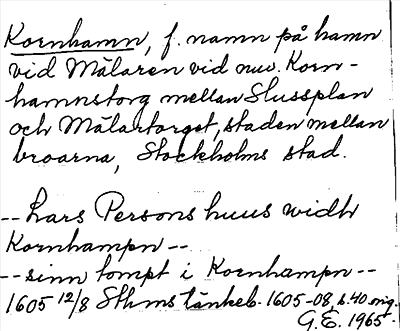 Kornhamn, f. namn på hamn
vid Mälaren vid nuv. Korn-
hamnstorg mellan Slussplan
och Mälartorget, staden mellan
broarna, Stockholms stad.
-- Lars Persons huus widh
Kornhampn --
-- sinn tompt i Kornhampn --
1605 12/8 Sthms tänkeb. 1605-08, s. 40 orig.
G.E. 1965.